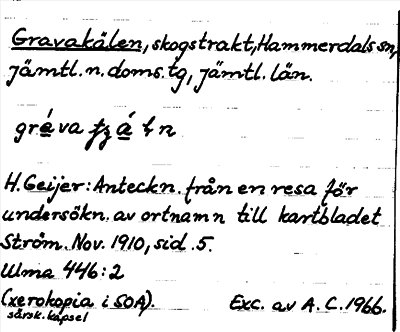 Gravakälen, skogstrakt, Hammerdals sn,
jämtl. n. doms. tg, jämtl. län.
H. Geijer: Anteckn. från en resa för
undersökn. av ortnamn till kartbladet
Ström. Nov. 1910, sid. 5.
Ulma 446:2
(xerokopia i SOA). Exc. av A. C. 1966.
särsk. kapsel